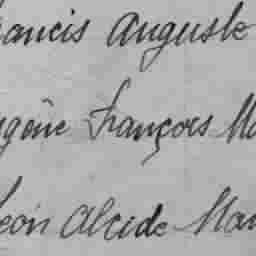 ancis Auguste
gène François Ma
éon Alcide Mar